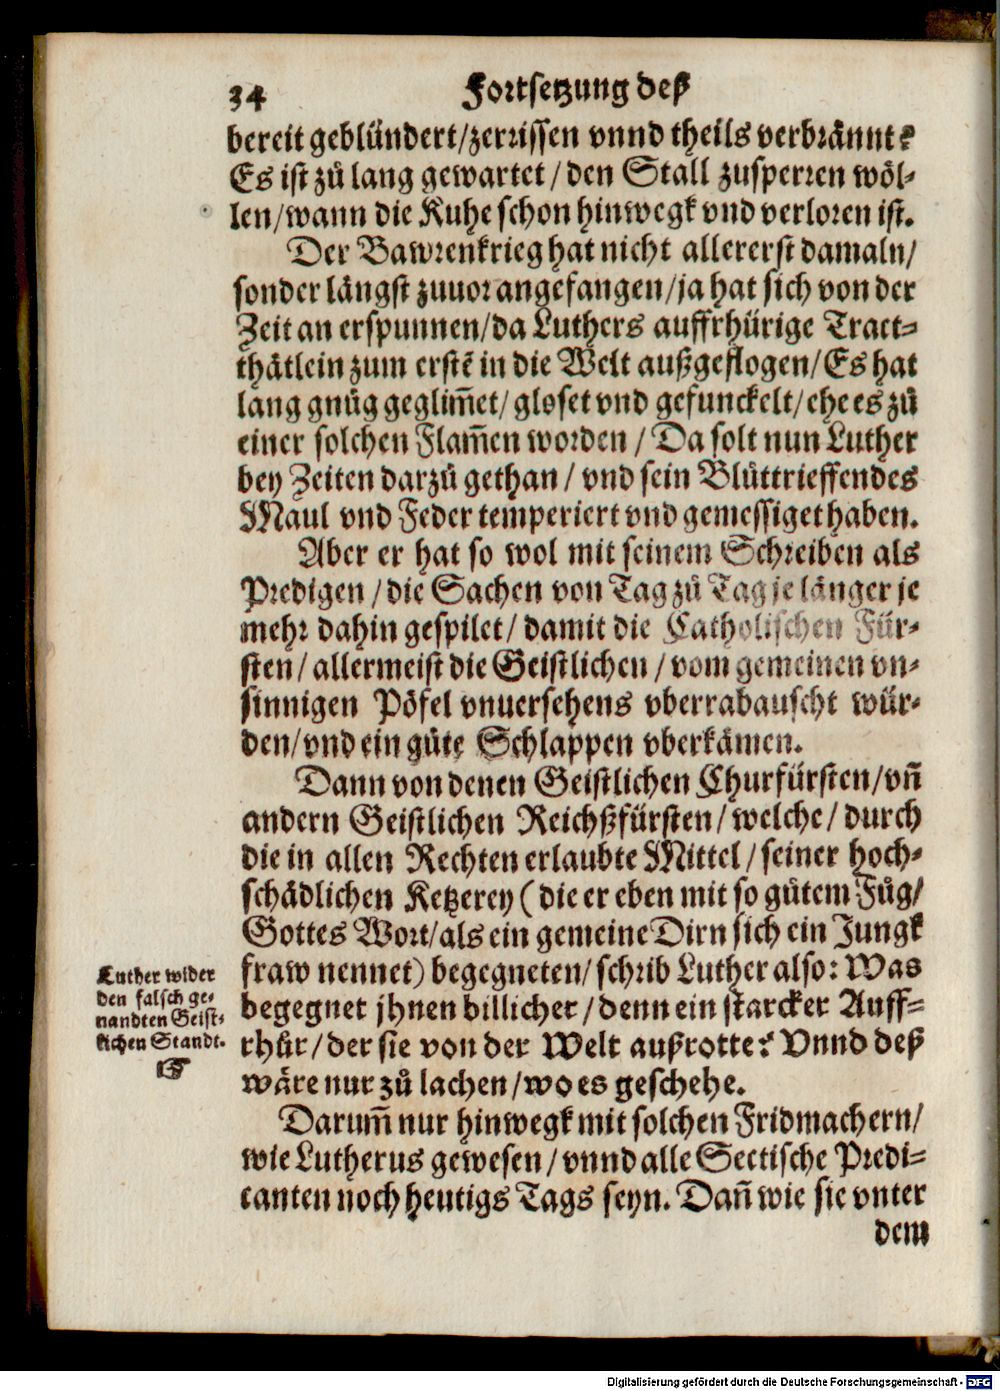 34 Fortsetzung deß
bereit geblündert/zerrissen vnnd theils verbrännt?
Es ist zů lang gewartet / den Stall zusperren wöl-
len/wann die Kuhe schon hinwegk vnd verloren ist.
Der Bawrenkrieg hat nicht allererst damaln/
sonder längst zuuor angefangen/ja hat sich von der
Zeit an erspunnen/da Luthers auffrhürige Tract-
thätlein zum erstẽ in die Welt außgeflogen/Es hat
lang gnůg geglim̃et/gloset vnd gefunckelt/ehe es zů
einer solchen Flam̃en worden / Da solt nun Luther
bey Zeiten darzů gethan / vnd sein Blůttrieffendes
Maul vnd Feder temperiert vnd gemessiget haben.
Aber er hat so wol mit seinem Schreiben als
Predigen / die Sachen von Tag zů Tag je länger je
mehr dahin gespilet / damit die Catholischen Für-
sten / allermeist die Geistlichen / vom gemeinen vn-
sinnigen Pöfel vnuersehens vberrabauscht wür-
den/vnd ein gůte Schlappen vberkämen.
Dann von denen Geistlichen Churfürsten/vñ
andern Geistlichen Reichßfürsten / welche / durch
die in allen Rechten erlaubte Mittel / seiner hoch-
schädlichen Ketzerey ( die er eben mit so gůtem Fůg/
Gottes Wort/als ein gemeine Dirn sich ein Jungk
fraw nennet) begegneten/schrib Luther also: Was
begegnet jhnen billicher / denn ein starcker Auff-
rhůr / der sie von der Welt außrotte? Vnnd deß
wäre nur zů lachen/wo es geschehe.
Luther wider
den falsch ge-
nandten Geist-
lichen Standt.
☞
Darum̃ nur hinwegk mit solchen Fridmachern/
wie Lutherus gewesen / vnnd alle Sectische Predi-
canten noch heutigs Tags seyn. Dañ wie sie vnter
dem
Digitalisierung gefördert durch die Deutsche Forschungsgemeinschaft - DFG